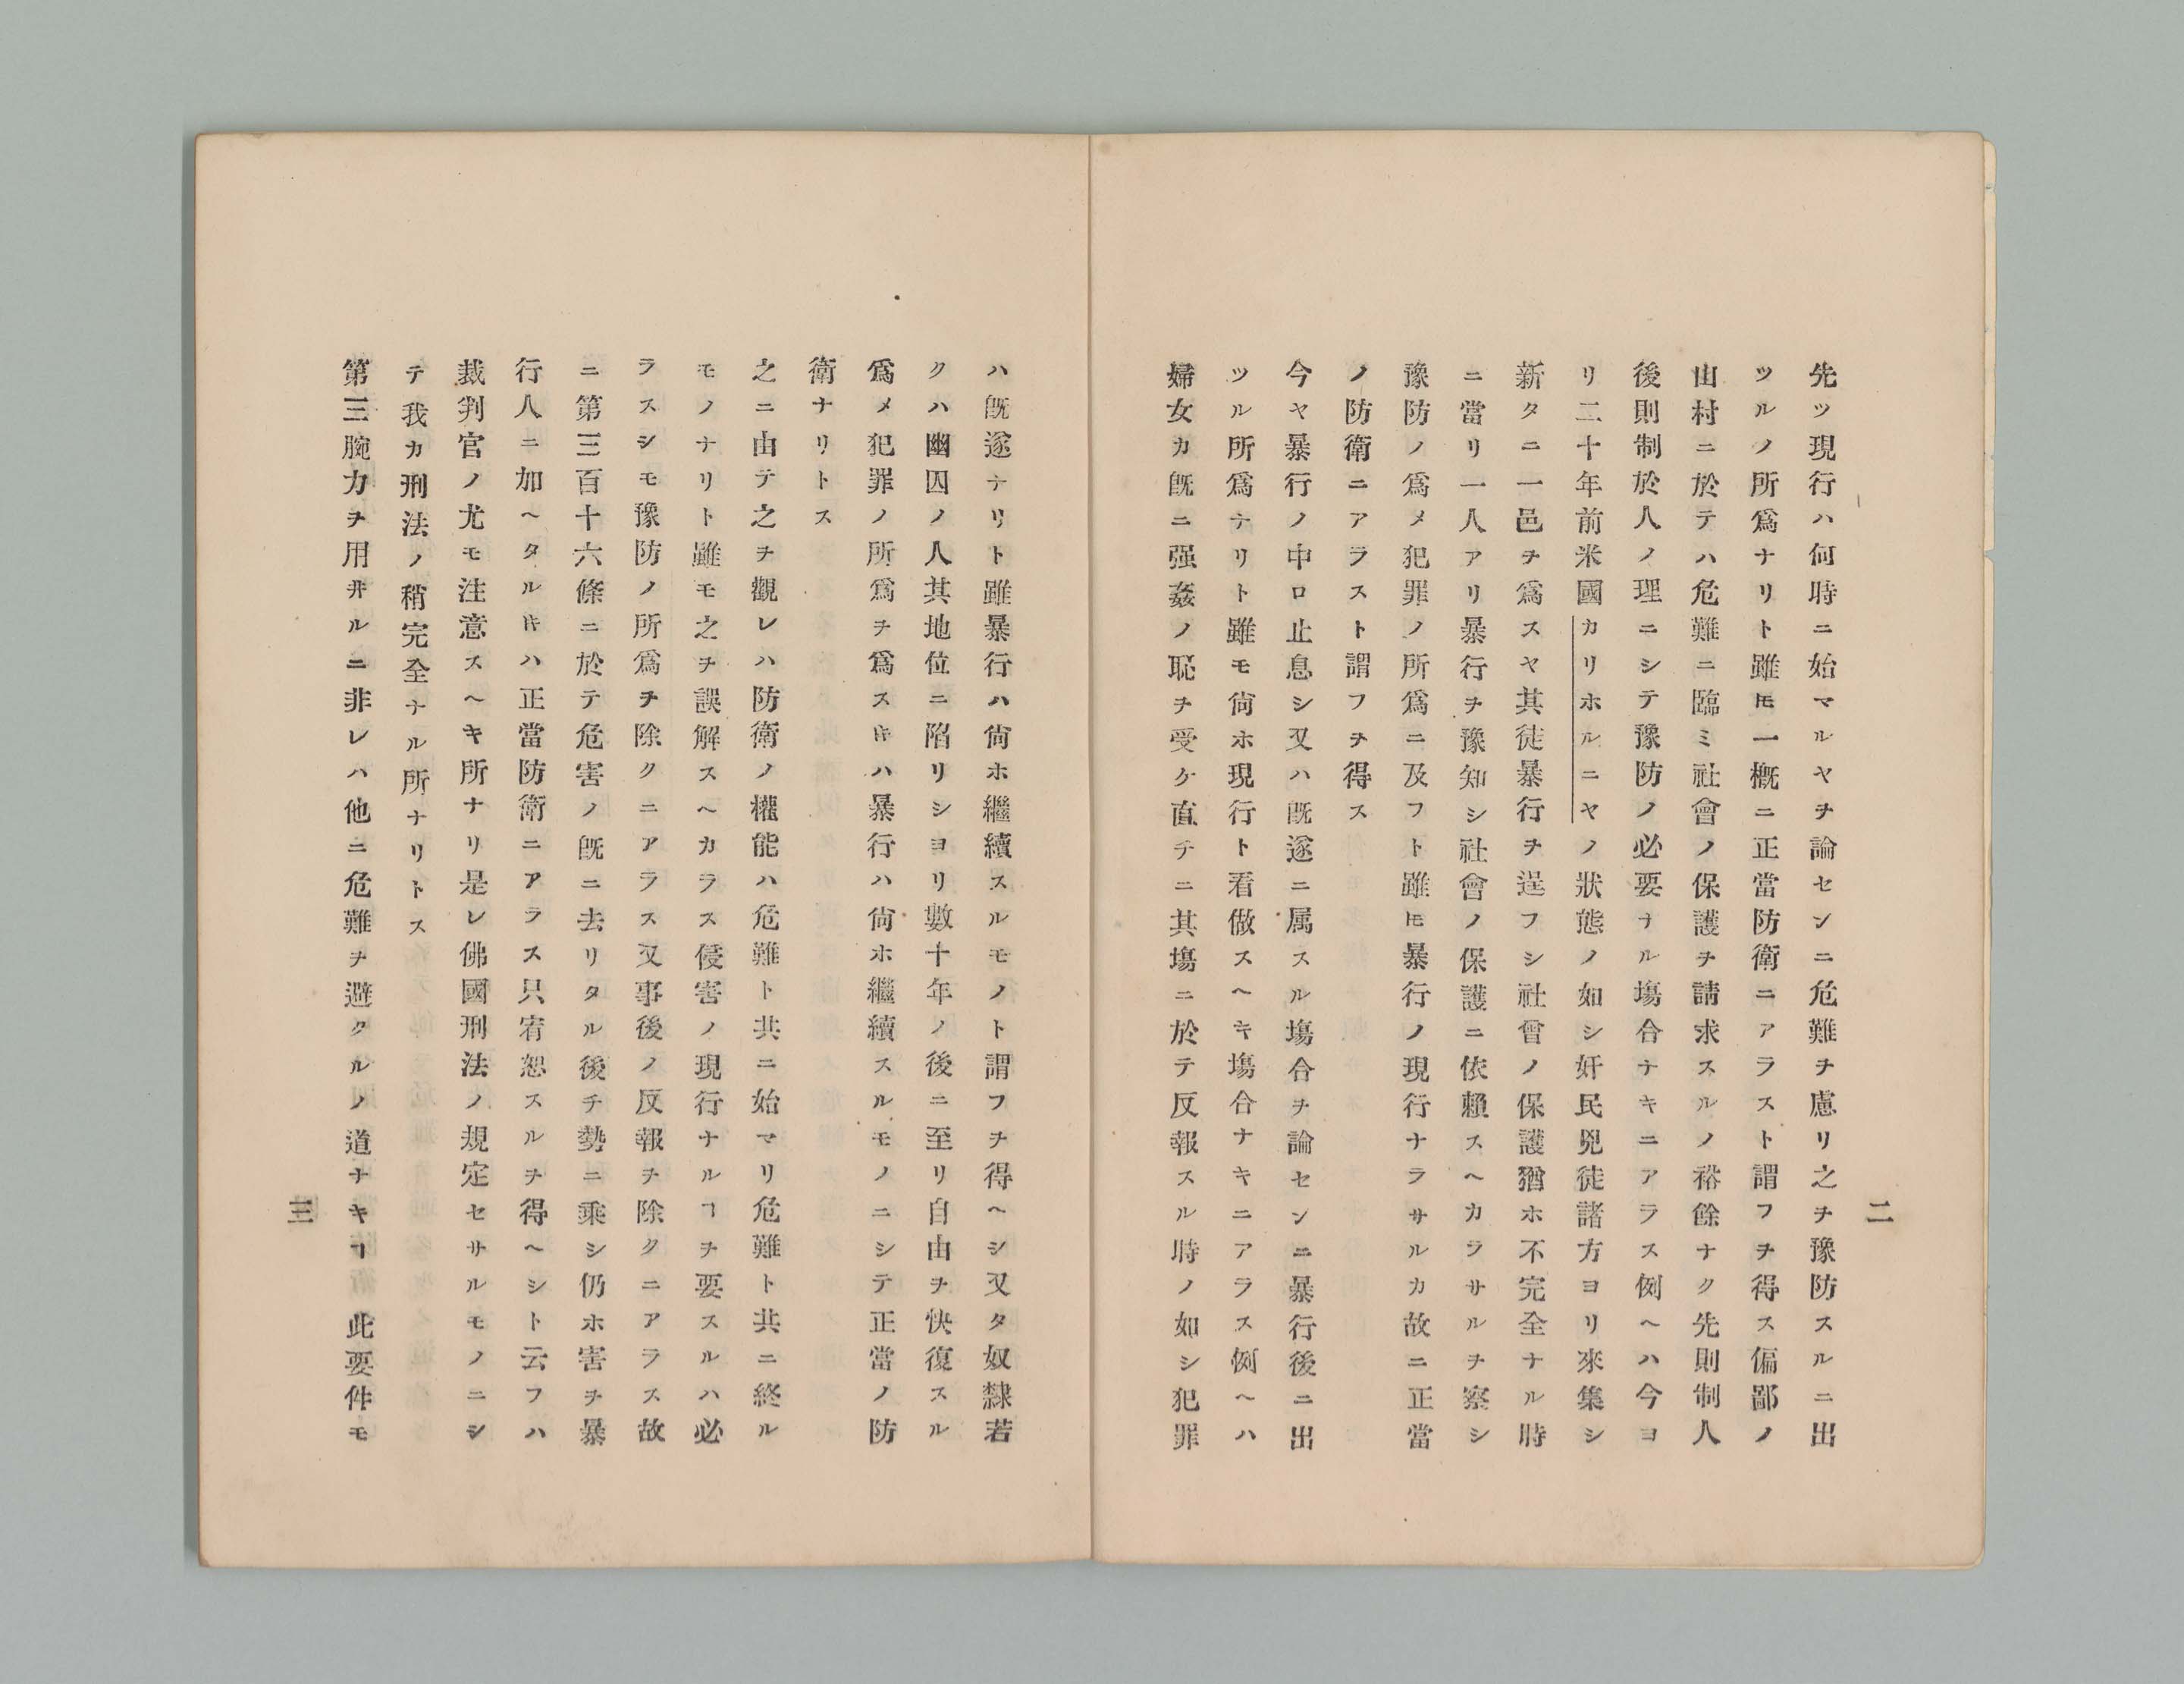 二
先ツ現行ハ何時ニ始マルヤヲ論センニ危難ヲ慮リ之ヲ豫防スルニ出
ツルノ所爲ナリト雖𪜈一概ニ正當防衛ニアラスト謂フヲ得ス偏鄙ノ
山村ニ於テハ危難ニ臨ミ社會ノ保護ヲ請求スルノ裕餘ナク先則制人
後則制於人ノ理ニシテ豫防ノ必要ナル塲合ナキニアラス例ヘハ今ヨ
リ二十年前米國カリホルニヤノ狀態ノ如シ奸民兇徒諸方ヨリ來集シ
新タニ一邑ヲ爲スヤ其徒暴行ヲ逞フシ社會ノ保護猶ホ不完全ナル時
ニ當リ一人アリ暴行ヲ豫知シ社會ノ保護ニ依賴スヘカラサルヲ察シ
豫防ノ爲メ犯罪ノ所爲ニ及フト雖𪜈暴行ノ現行ナラサルカ故ニ正當
ノ防衛ニアラスト謂フヲ得ス
今ヤ暴行ノ中ロ止息シ又ハ既遂ニ属スル塲合ヲ論センニ暴行後ニ出
ツル所爲ナリト雖モ尙ホ現行ト看做スヘキ塲合ナキニアラス例ヘハ
婦女カ既ニ强姦ノ恥ヲ受ケ直チニ其塲ニ於テ反報スル時ノ如シ犯罪
ハ既遂ナリト雖暴行ハ尙ホ繼續スルモノト謂フヲ得ヘシ又タ奴隸若
クハ幽囚ノ人其地位ニ陷リシヨリ數十年ノ後ニ至リ自由ヲ快復スル
爲メ犯罪ノ所爲ヲ爲スキハ暴行ハ尙ホ繼續スルモノニシテ正當ノ防
衛ナリトス
之ニ由テ之ヲ觀レハ防衛ノ權能ハ危難ト共ニ始マリ危難ト共ニ終ル
モノナリト雖モ之ヲ誤解スヘカラス侵害ノ現行ナルヿヲ要スルハ必
ラスシモ豫防ノ所爲ヲ除クニアラス又事後ノ反報ヲ除クニアラス故
ニ第三百十六條ニ於テ危害ノ既ニ去リタル後チ勢ニ乘シ仍ホ害ヲ暴
行人ニ加ヘタルキハ正當防衛ニアラス只宥恕スルヲ得ヘシト云フハ
裁判官ノ尤モ注意スヘキ所ナリ是レ佛國刑法ノ規定セサルモノニシ
テ我カ刑法ノ稍完全ナル所ナリトス
第三腕力ヲ用井ルニ非レハ他ニ危難ヲ避クルノ道ナキヿ　此要件モ
三